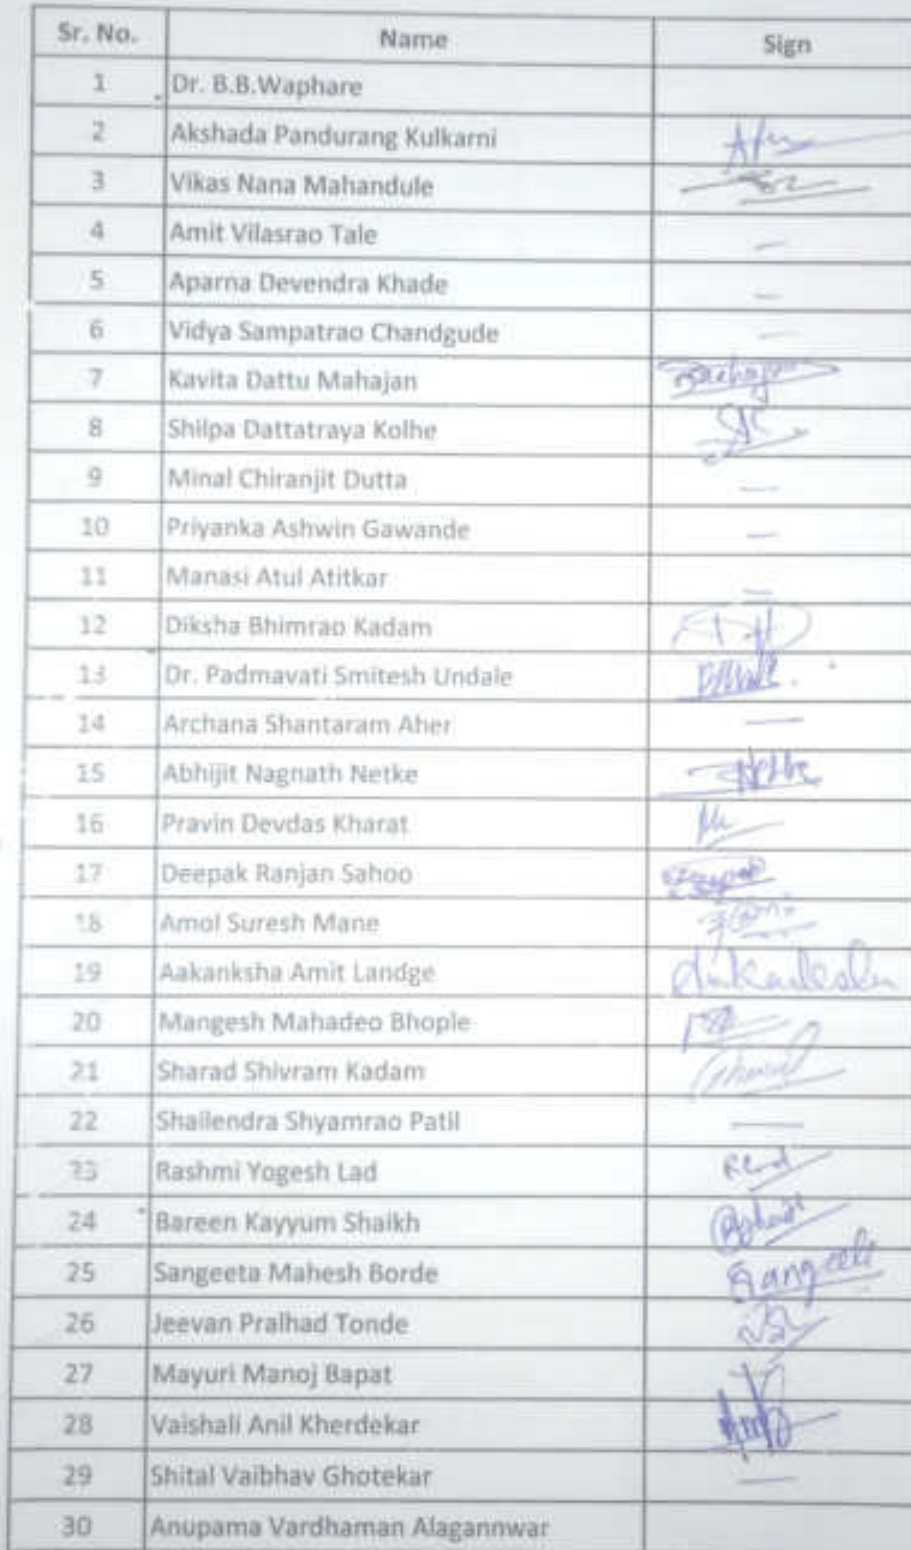 Sr. No. Name Sign
1 Dr. B.B.Waphare
2 Akshada Pandurang Kulkarni
3 Vikas Nana Mahandule
4 Amit Vilasrao Tale —
5 Aparna Devendra Khade —
6 Vidya Sampatrao Chandgude —
7 Kavita Dattu Mahajan
8 Shilpa Dattatraya Kolhe
9 Minal Chiranjit Dutta —
10 Priyanka Ashwin Gawande —
11 Manasi Atul Atitkar —
12 Diksha Bhimrao Kadam
13 Dr. Padmavati Smitesh Undale
14 Archana Shantaram Aher —
15 Abhijit Nagnath Netke
16 Pravin Devdas Kharat
17 Deepak Ranjan Sahoo
18 Amol Suresh Mane
19 Aakanksha Amit Landge
20 Mangesh Mahadeo Bhople
21 Sharad Shivram Kadam
22 Shailendra Shyamrao Patil —
23 Rashmi Yogesh Lad
24 Bareen Kayyum Shaikh
25 Sangeeta Mahesh Borde
26 Jeevan Pralhad Tonde
27 Mayuri Manoj Bapat
28 Vaishali Anil Kherdekar
29 Shital Vaibhav Ghotekar —
30 Anupama Vardhaman Alagannwar